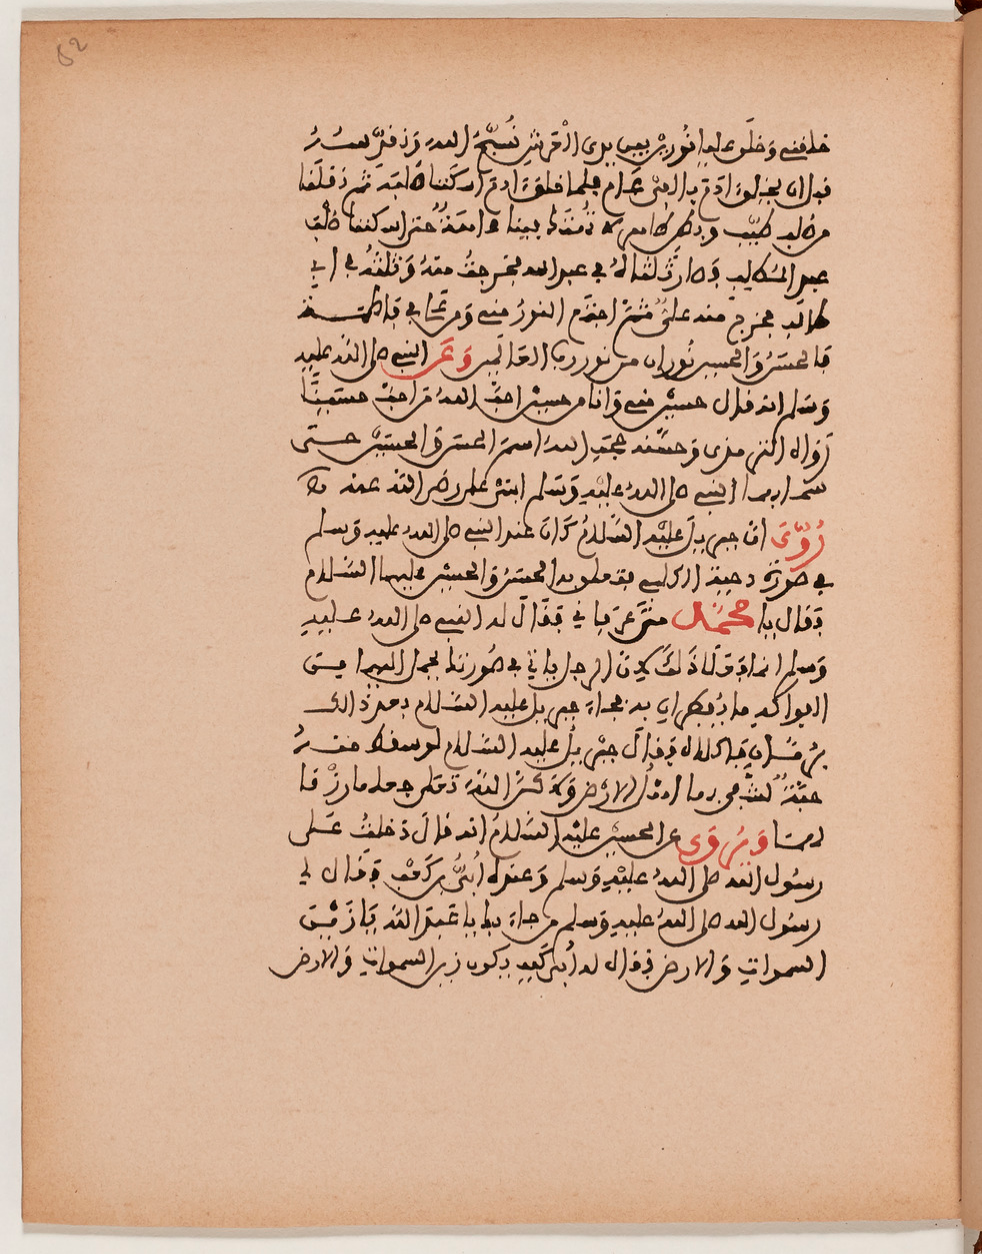 52
خلقني وخلق عليا نورين بين يدي العرش نسبح الله ونقدسه
قبل ان يخلق ادم بالفي عام فلما خلق ادم اسكننا صلبه ثم نقلنا
من صلب طيب وبطن طاهر لا تهمة بيننا ولا امنة حتى اسكننا صلب
عبد المطلب وصار ثلثاه في عبد الله فخرجت منه وثلثه في ابي
طالب فخرج منه علي ثم اجتمع النور مني ومن علي في فاطمة
فالحسن والحسين نوران من نور رب العالمين وعن النبي صلى الله عليه
وسلم انه قال حسين مني وانا من حسين احب الله من احب حسينا
رواه الترمذي وحسنه حجب الله اسم الحسن والحسين حتى
سمى بهما النبي صلى الله عليه وسلم ابني علي رضي الله عنه
روي ان جبريل عليه السلام كان عند النبي صلى الله عليه وسلم
في صورة دحية الكلبي فتعلق به الحسن والحسين عليهما السلام
فقال يا محمد متى عرفاني فقال له النبي صلى الله عليه
وسلم انما فعلا ذلك لان الرجل ياتي في صورتك يحمل اليهما من
الفواكه ما يفطران به فجاء جبريل عليه السلام بعد ذلك
برمان فاكلاه فقال جبريل عليه السلام لو سقط منه
حبة لشفي بها اهل الارض ولكن الله تعالى جعله رزقا
لهما ويروى عن الحسين عليه السلام انه قال دخلت على
رسول الله صلى الله عليه وسلم وعنده ابي بن كعب فقال لي
رسول الله صلى الله عليه وسلم مرحبا بك يا عبد الله يا زين
السموات والارض فقال له ابن كعب يكون زين السموات والارض